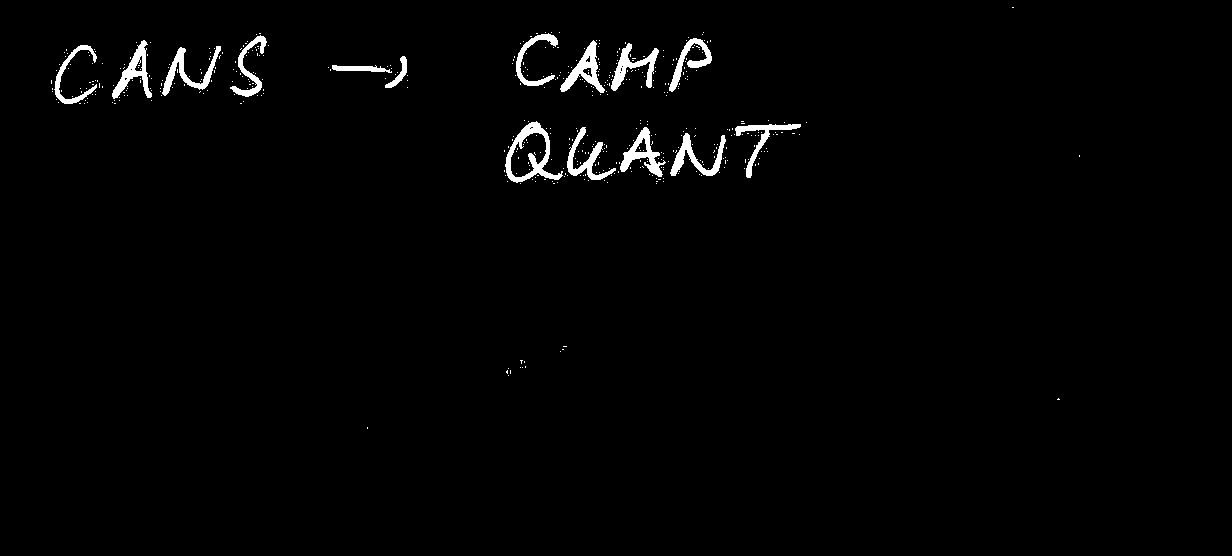 CANS → CAMP
QUANT